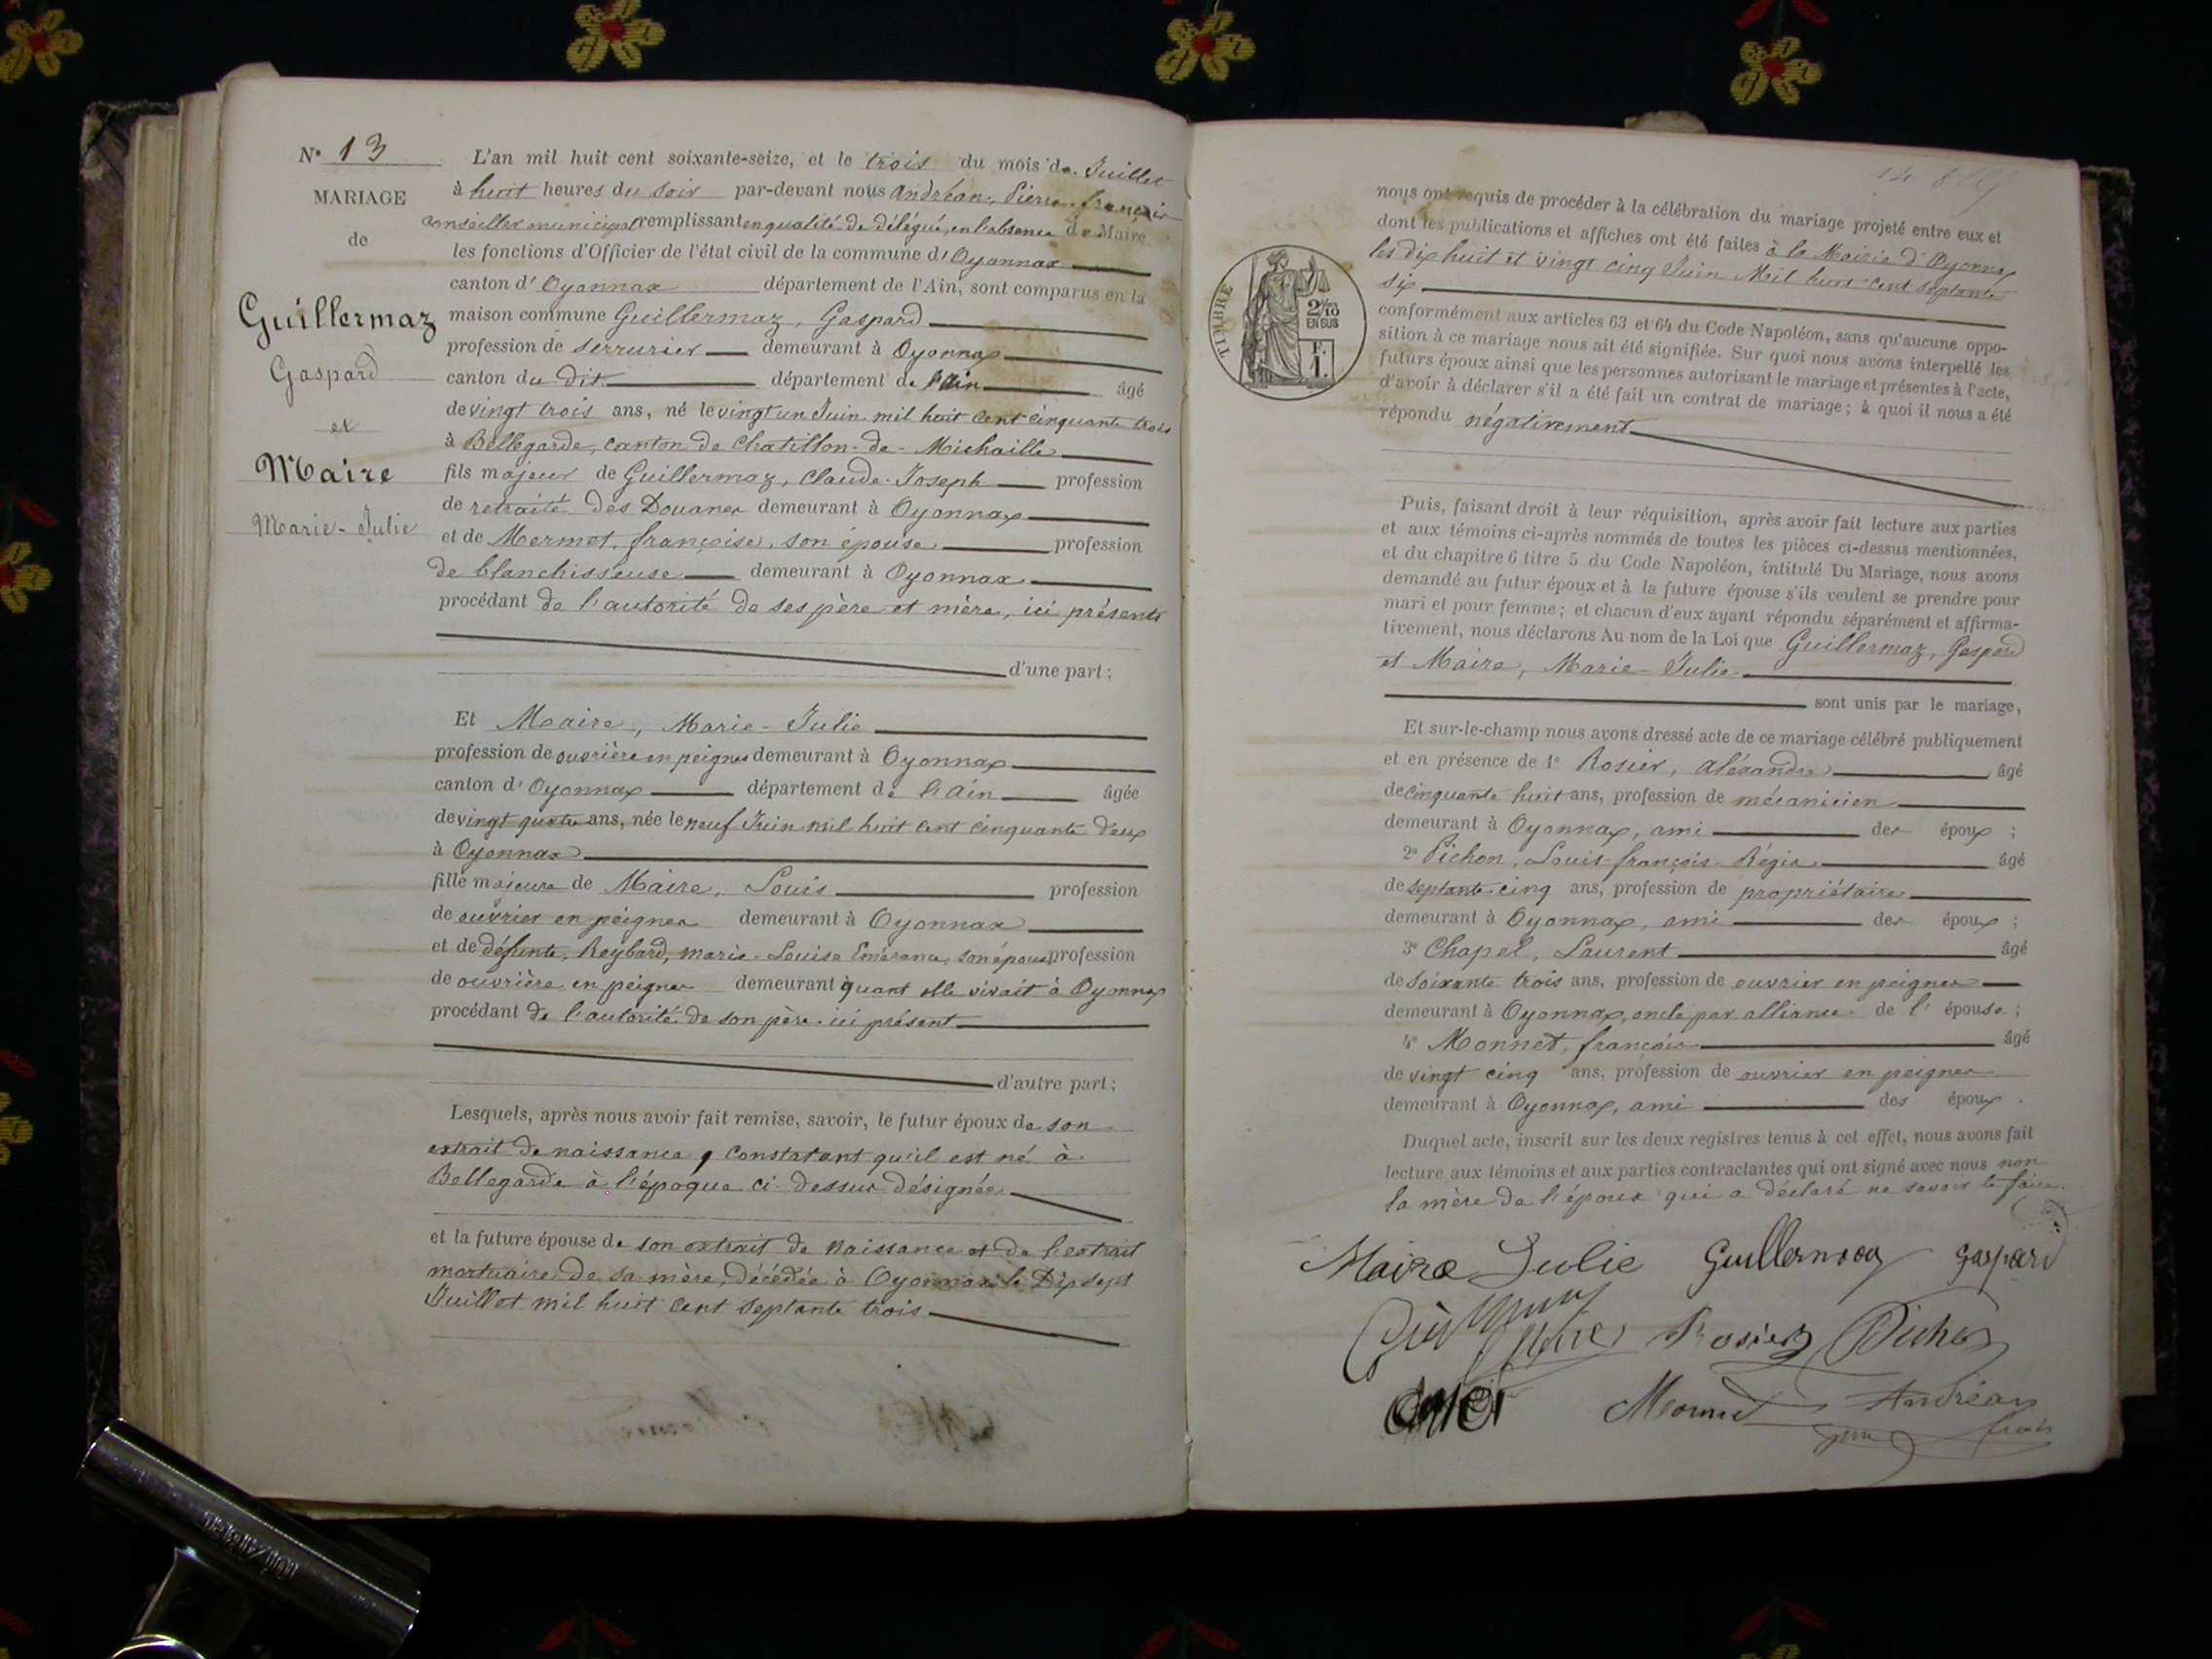 N° 13
MARIAGE
de
Guillermaz
Gaspard
et
Maire
Marie-Julie
L'an mil huit cent soixante-seize, et le trois du mois de Juillet
à huit heures du soir par-devant nous Andréan, Pierre-françois
conseiller municipal remplissant en qualité de délégué, en l'absence du Maire
les fonctions d'Officier de l'état civil de la commune d'Oyonnax
canton d'Oyonnax département de l'Ain, sont comparus en la
maison commune Guillermaz, Gaspard
profession de serrurier demeurant à Oyonnax
canton du dit département de l'Ain âgé
de vingt trois ans, né le vingt un Juin mil huit cent cinquante trois
à Bellegarde, canton de Chatillon-de-Michaille
fils majeur de Guillermaz, Claude-Joseph profession
de retraité des Douanes demeurant à Oyonnax
et de Mermet, françoise, son épouse profession
de blanchisseuse demeurant à Oyonnax
procédant de l'autorité de ses père et mère, ici présents
d'une part;
Et Maire, Marie-Julie
profession de ouvrière en peignes demeurant à Oyonnax
canton d'Oyonnax département de l'Ain âgée
de vingt quatre ans, née le neuf Juin mil huit cent cinquante deux
à Oyonnax
fille majeure de Maire, Louis profession
de ouvrier en peignes demeurant à Oyonnax
et de défunte, Reybard, marie-Louise Emérance, son épouse profession
de ouvrière en peignes demeurant quant elle vivait à Oyonnax
procédant de l'autorité de son père ici présent
d'autre part;
Lesquels, après nous avoir fait remise, savoir, le futur époux de son
extrait de naissance, constatant qu'il est né à
Bellegarde à l'époque ci-dessus désignée
et la future épouse de son extrait de naissance et de l'extrait
mortuaire de sa mère, décédée à Oyonnax le Dix sept
Juillet mil huit cent septante trois
TIMBRE
2/10
EN SUS
F.
1.
nous ont requis de procéder à la célébration du mariage projeté entre eux et
dont les publications et affiches ont été faites à la Mairie d'Oyonnax
les dix huit et vingt cinq Juin Mil huit cent septante
six
conformément aux articles 63 et 64 du Code Napoléon, sans qu'aucune oppo-
sition à ce mariage nous ait été signifiée. Sur quoi nous avons interpellé les
futurs époux ainsi que les personnes autorisant le mariage et présentes à l'acte,
d'avoir à déclarer s'il a été fait un contrat de mariage; à quoi il nous a été
répondu négativement
Puis, faisant droit à leur réquisition, après avoir fait lecture aux parties
et aux témoins ci-après nommés de toutes les pièces ci-dessus mentionnées,
et du chapitre 6 titre 5 du Code Napoléon, intitulé Du Mariage, nous avons
demandé au futur époux et à la future épouse s'ils veulent se prendre pour
mari et pour femme; et chacun d'eux ayant répondu séparément et affirma-
tivement, nous déclarons Au nom de la Loi que Guillermaz, Gaspard
et Maire, Marie-Julie
sont unis par le mariage,
Et sur-le-champ nous avons dressé acte de ce mariage célébré publiquement
et en présence de 1° Rosier, aléxandre âgé
de cinquante huit ans, profession de mécanicien
demeurant à Oyonnax, ami des époux;
2° Pichon, Louis-françois-Régis âgé
de septante-cinq ans, profession de propriétaire
demeurant à Oyonnax, ami des époux;
3° Chapel, Laurent âgé
de soixante trois ans, profession de ouvrier en peignes
demeurant à Oyonnax, oncle par alliance de l'épouse;
4° Monnet, françois âgé
de vingt cinq ans, profession de ouvrier en peignes
demeurant à Oyonnax, ami des époux.
Duquel acte, inscrit sur les deux registres tenus à cet effet, nous avons fait
lecture aux témoins et aux parties contractantes qui ont signé avec nous non
la mère de l'époux qui a déclaré ne savoir le faire.
Maire Julie Guillermoz gaspard
Rosier Pichon
Monnet Andréan